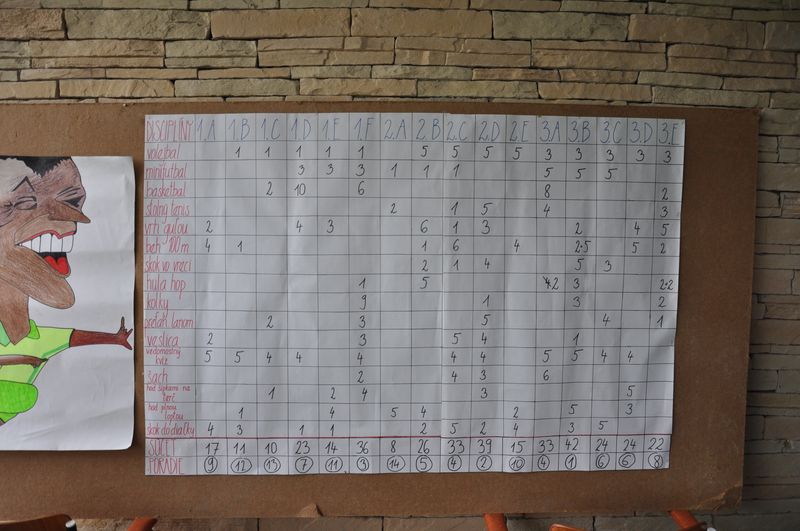 DISCIPLÍNY 1.A 1.B 1.C 1.D 1.E 1.F 2.A 2.B 2.C 2.D 2.E 3.A 3.B 3.C 3.D 3.E
volejbal 1 1 1 1 1 5 5 5 5 3 3 3 3 3
minifutbal 3 3 3 1 1 1 5 5 5
basketbal 2 10 6 8 2
stolný tenis 2 1 5 4 3
vrh guľou 2 4 3 6 1 3 2 4 5
beh 100 m 4 1 1 6 4 2·5 5 2
skok vo vreci 2 1 4 5 3
hula hop 1 5 2 3 2·2
kolky 9 1 3 2
preťah lanom 2 3 5 4 1
veslica 2 3 5 4 1
vedomostný kvíz 5 5 4 4 4 4 4 5 5 4 4
šach 2 4 3 6
hod šípkami na terč 1 2 4 3 5
hod plnou loptou 1 4 5 4 2 5 3
skok do diaľky 4 3 1 1 2 5 2 4 3 5
SÚČET 17 11 10 23 14 36 8 26 33 39 15 33 42 24 24 22
PORADIE 9 12 13 7 11 3 14 5 4 2 10 4 1 6 6 8